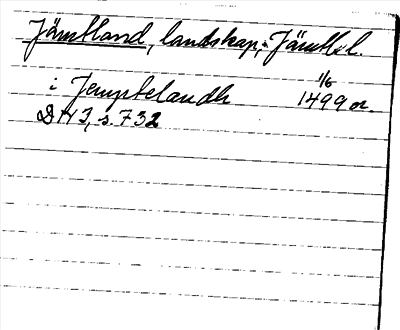 Jämtland, landskap, Jämtl. l.
i Jemptelandh 1/6 1499 or.
DN 3, s. 732